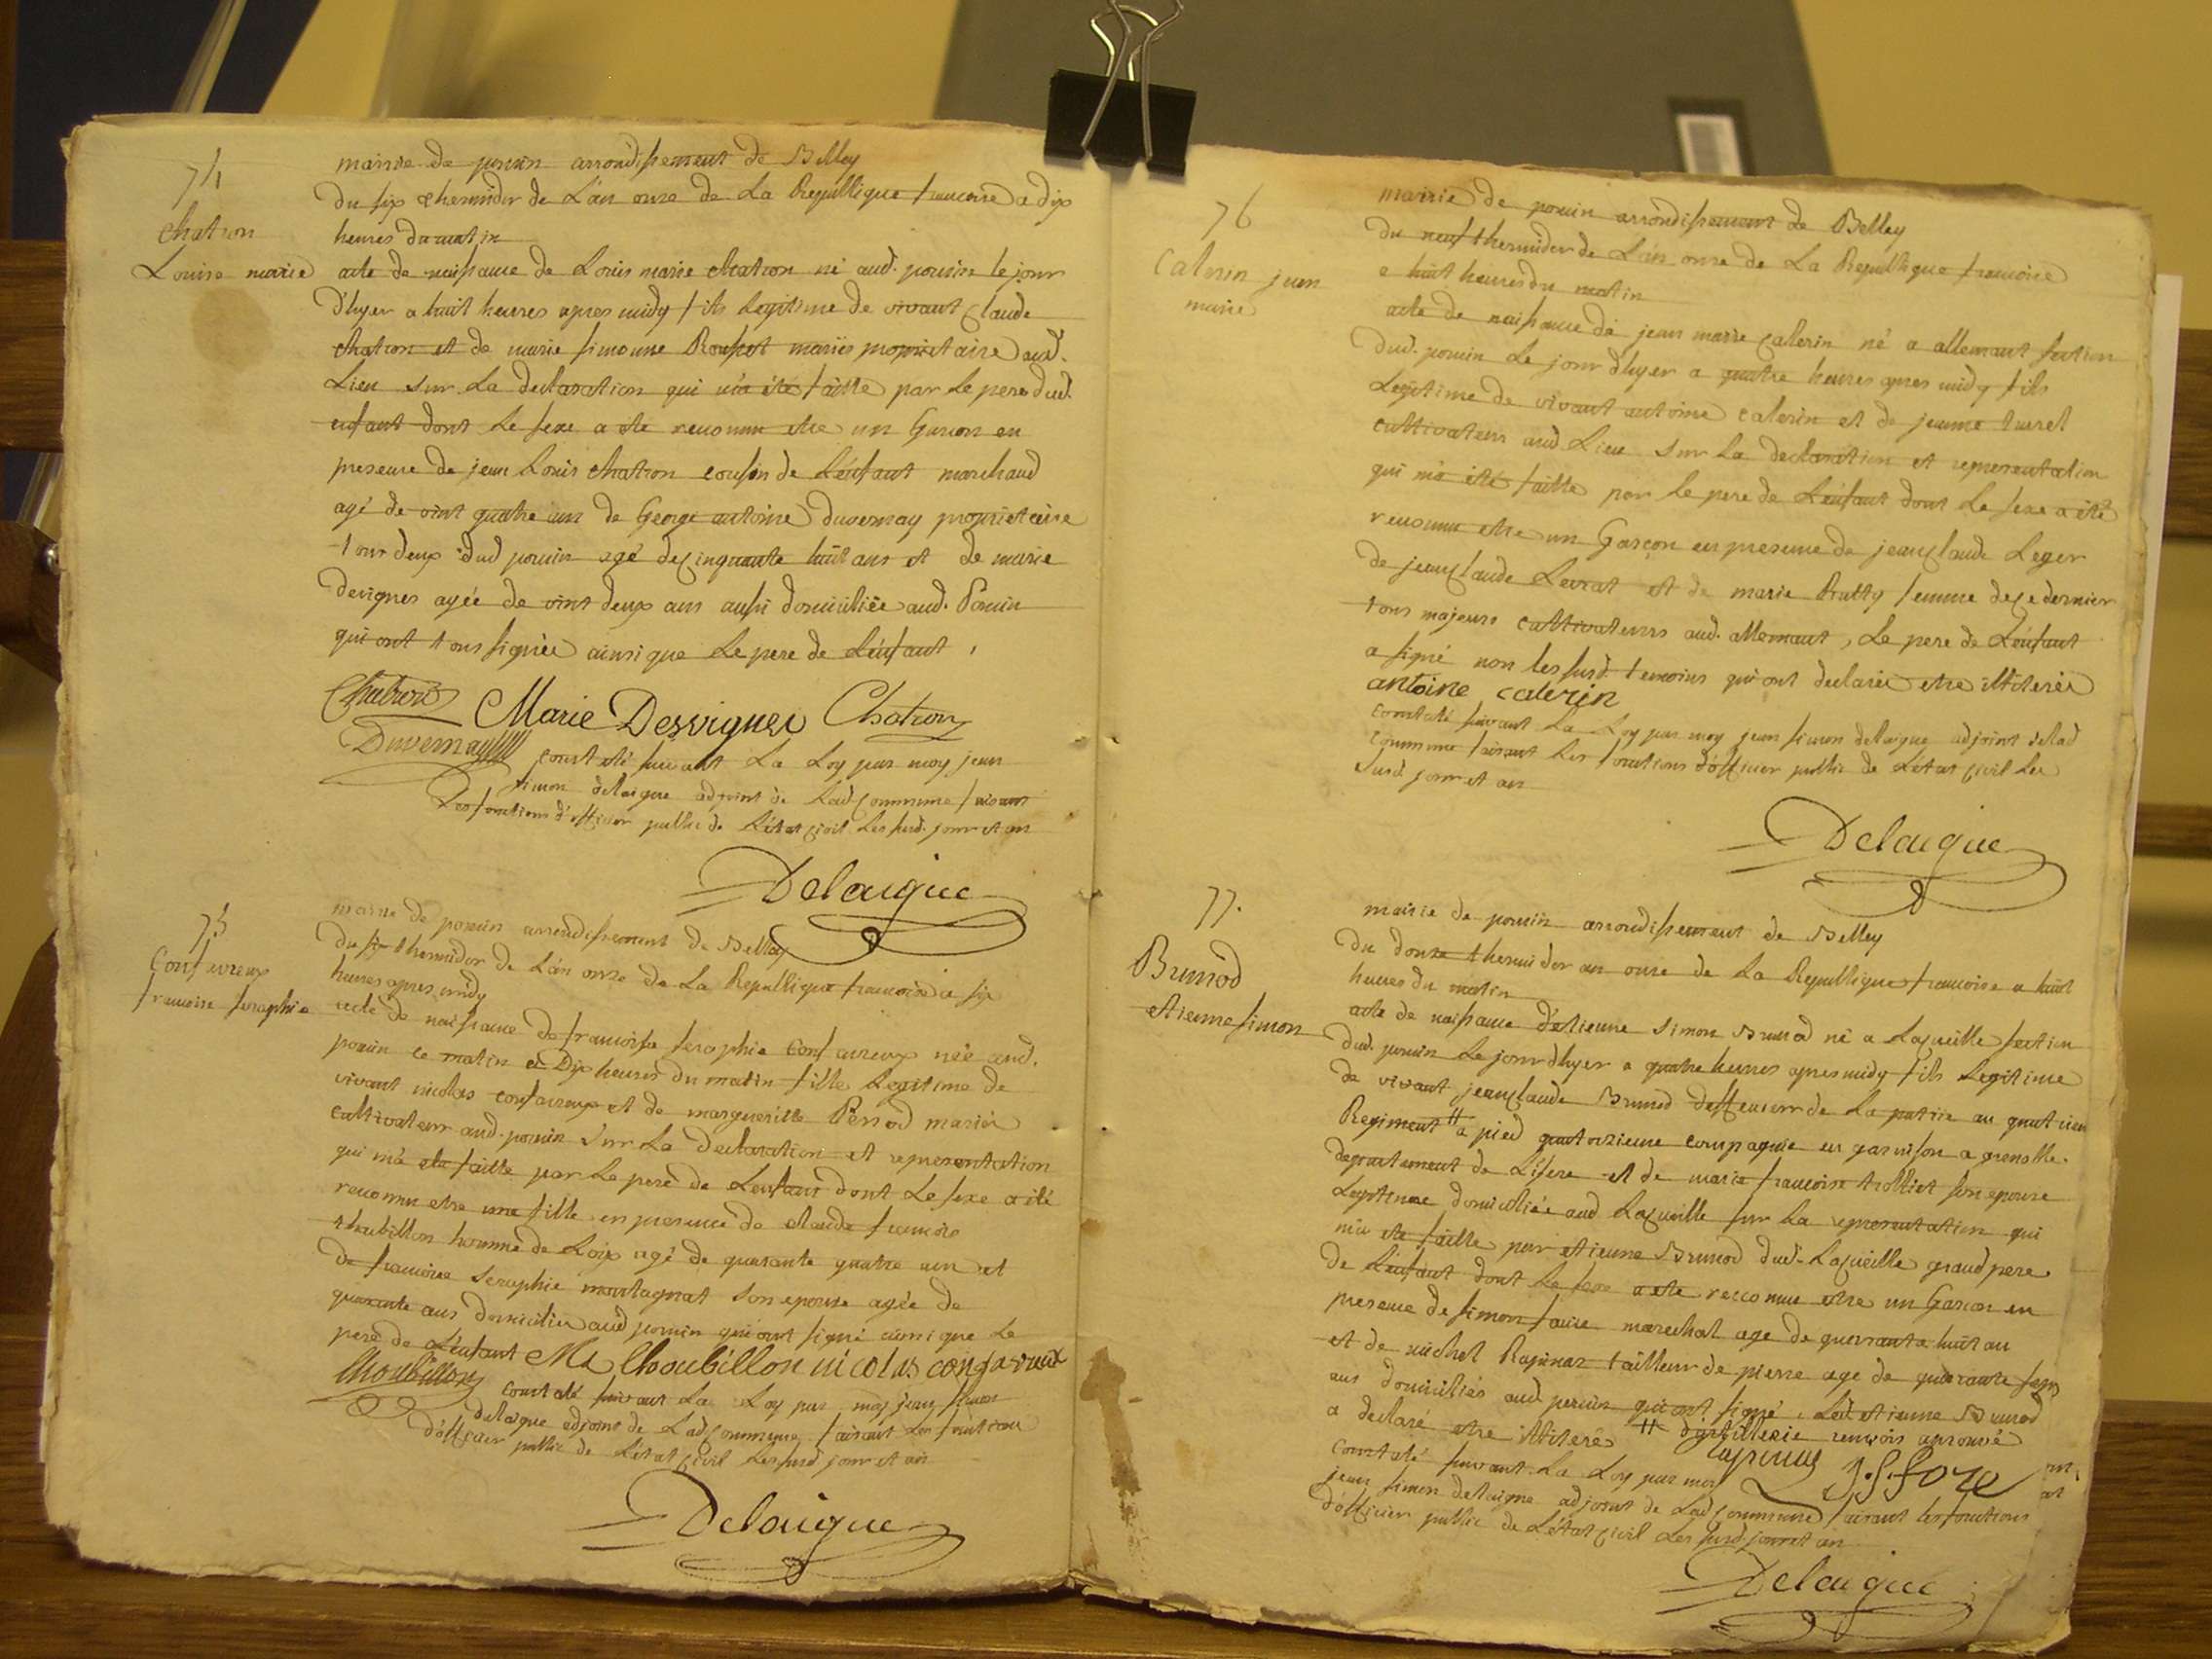 74
chatron
Louise marie
mairie de poncin arrondissement de Belley
du six thermidor de L'an onze de La Republique francoise a dix
heures du matin
acte de naissance de Louis marie chatron né aud. poncin le jour
d'hyer a huit heures apres midy fils Legitime de vivant Claude
chatron et de marie simonne Rousset mariés propriétaire aud.
Lieu sur La declaration qui m'a été faitte par Le pere dud.
enfant dont Le sexe a ete reconnu etre un Garcon en
presence de jean Louis chatron cousin de L'enfant marchand
agé de vint quatre an de George antoine duvernay proprietaire
tour deux dud poncin agé de cinquante huit ans et de marie
devignes agée de vint deux ans aussi domiciliée aud. Poncin
qui ont tous signée ainsi que Le pere de L'enfant,
Chatron Marie Desvignes Chatron
Duvernay
constaté suivant La Loy par moy jean
simon delaigue adjoint de Lad commune faisant
Les fonctions d'officier public de L'état civil Les susd. jour et an
Delaigue
75
Confavreux
francoise seraphie
mairie de poncin arrondissement de Belley
du six thermidor de L'an onze de La Republique francoise a six
heures apres midy
acte de naissance de francoise seraphie Confavreux née aud.
poncin ce matin a Dix heures du matin fille Legitime de
vivant nicolas confavreux et de margueritte Perrod mariés
cultivateur aud. poncin sur La declaration et representation
qui m'a ete faitte par Le pere de L'enfant dont Le sexe a été
reconnu etre une fille en presence de claude francois
thoubillon homme de Loix agé de quarante quatre an et
de francoise seraphie montagnat son epouse agée de
quarante ans domicilies aud poncin qui ont signé ainsi que Le
pere de L'enfant Mt thoubillon nicolas confavreux
thoubillon
constaté suivant La Loy par moy jean simon
delaigue adjoint de Lad commune faisant Les fonction
d'officier public de L'état civil Les susd jour et an
Delaigue
76
Calerin jean
marie
mairie de poncin arrondissement de Belley
du neuf thermidor de L'an onze de La Republique francoise
a huit heures du matin
acte de naissance de jean marie Calerin né a allemant section
dud. poncin Le jour d'hyer a quatre heures apres midy fils
Legitime de vivant antoine calerin et de jeanne turrel
cultivateur aud Lieu sur La declaration et representation
qui m'a été faitte par Le pere de L'enfant dont Le sexe a été
reconnu etre un Garçon en presence de jean Claude Leger
de jean Claude Levrat et de marie Rutty femme de ce dernier
tous majeurs cultivateurs aud. allemant, Le pere de L'enfant
a signé non les susd. temoins qui ont declarée etre illiterée
antoine calerin
constaté suivant La Loy par moy jean simon delaigue adjoint delad
commune faisant Les fonctions d'officier public de L'état civil Les
susd jour et an
Delaigue
77.
Brunod
etienne simon
mairie de poncin arrondissement de Belley
du douze thermidor an onze de La Republique francoise a huit
heures du matin
acte de naissance d'etienne simon Brunod né a Lacueille section
dud. poncin Le jour d'hyer a quatre heures apres midy fils Legitime
de vivant jean Claude Brunod deffenseur de La patrie au
Regiment # a pied quatorzieme compagnie en garnison a grenoble
departement de L'isere et de marie francoise trolliet son epouse
Legitime domiciliée aud Lacueille sur La representation qui
m'a ete faitte par etienne Brunod dud. Lacueille grand pere
de L'enfant dont Le sexe a ete reconnu etre un Garcon en
presence de simon faure marechal age de quarante huit an
et de michel Rapinaz tailleur de pierre age de quarante sept
ans domiciliés aud. poncin qui ont signé, Led. etienne Brunod
a declaré etre illiteré # d'artillerie renvois aprouvé
constaté suivant La Loy par moy
jean simon delaigue adjoint de Lad commune faisant les fonctions
d'officier public de L'état civil Les susd. jour et an
Delaigue